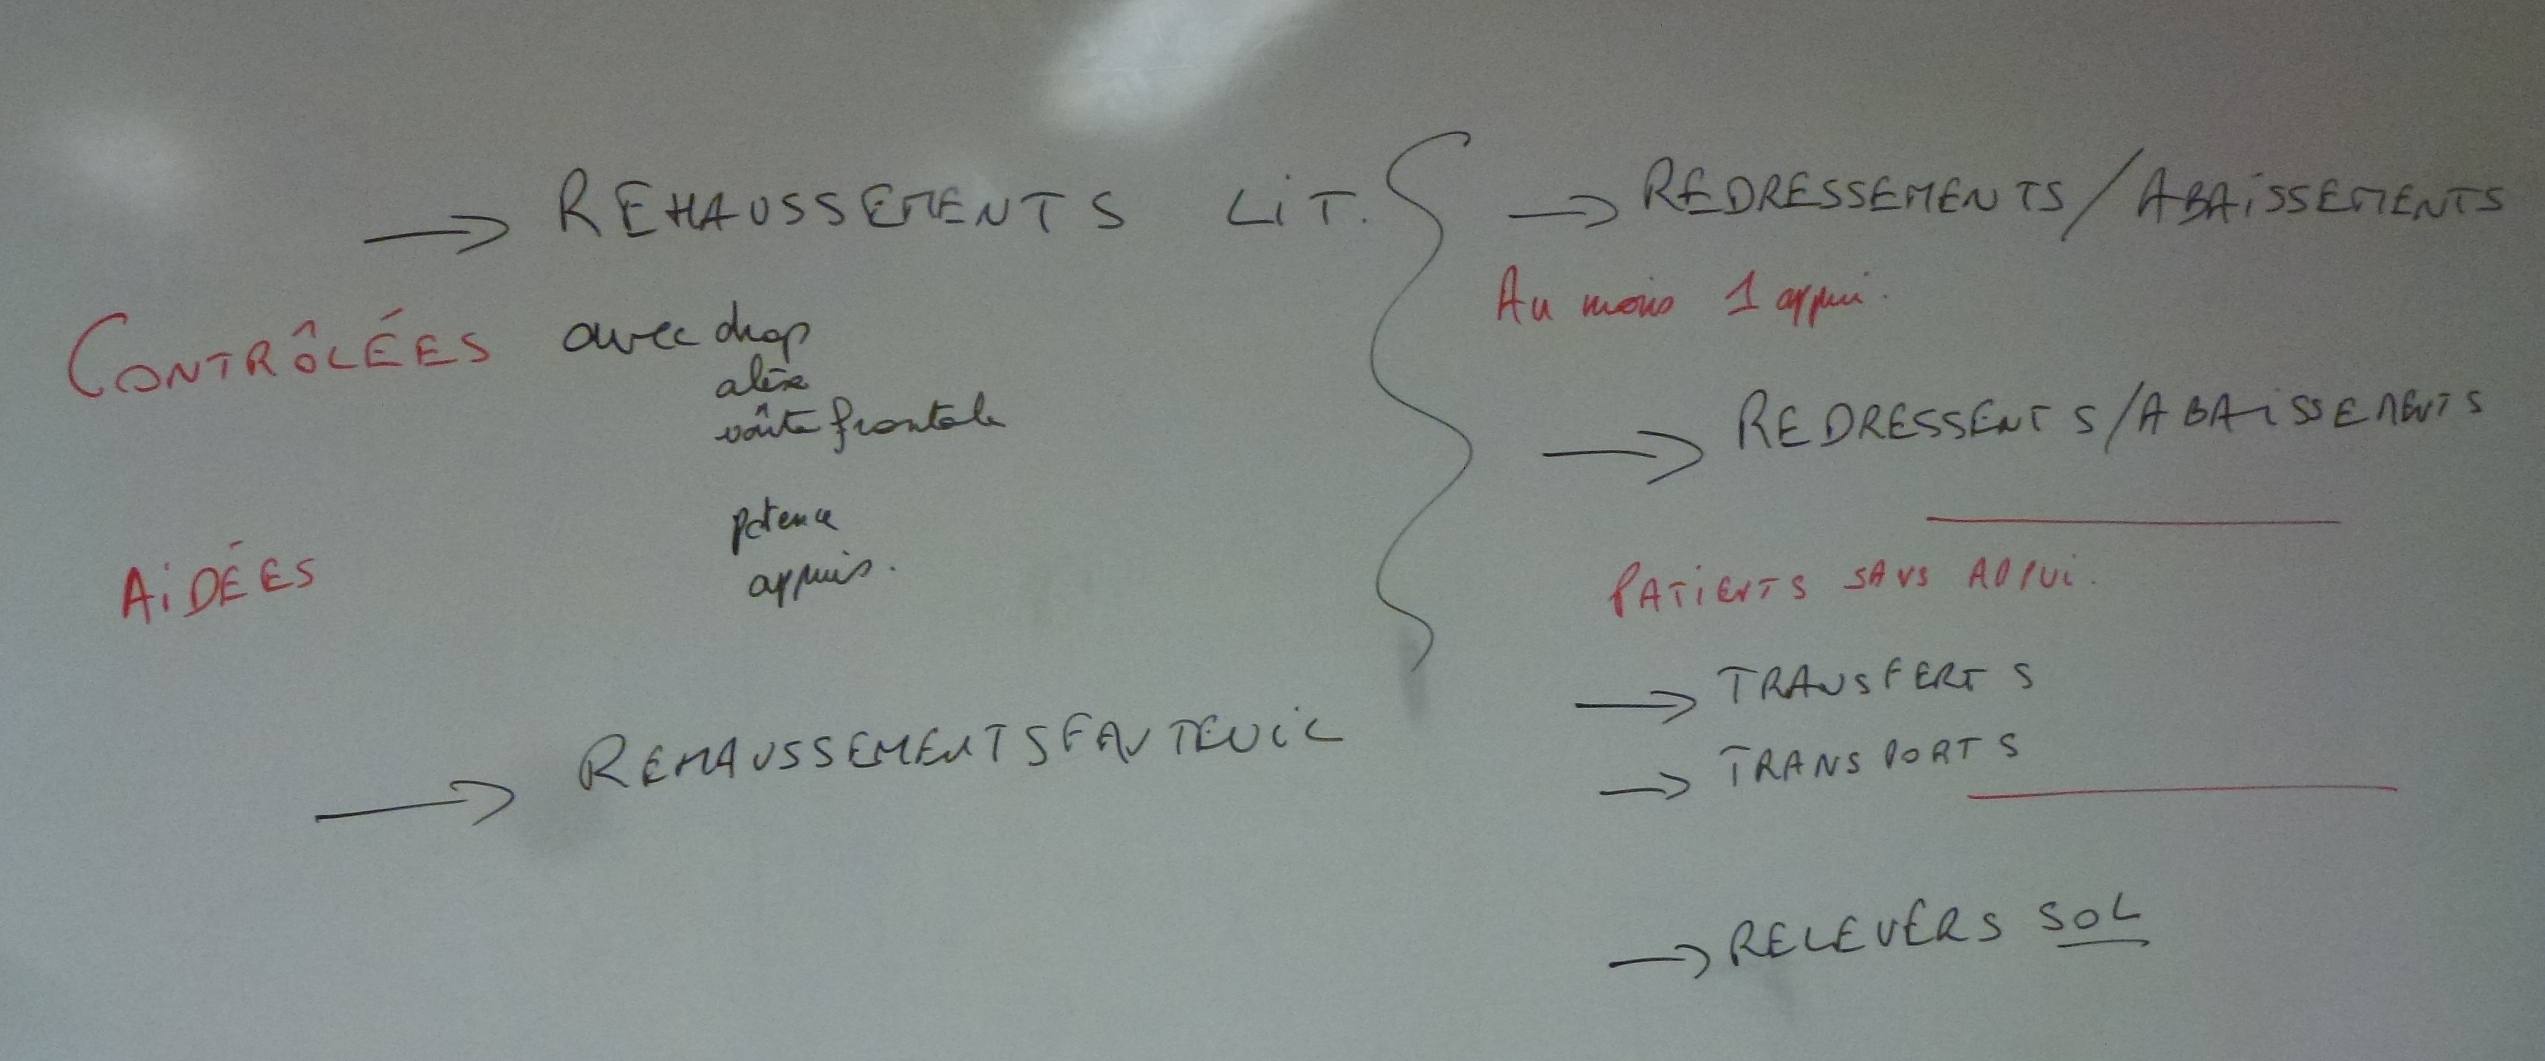 → REHAUSSEMENTS LiT.
CONTRÔLÉES avec drap
alèse
voûte frontale
AiDÉES
potence
appuis.
→ REHAUSSEMENTS FAUTEUiL
→ REDRESSEMENTS / ABAiSSEMENTS
Au moins 1 appui.
→ REDRESSENTS / ABAiSSEMENTS
PATiENTS SANS APPUi.
→ TRANSFERTS
→ TRANSPORTS
→ RELEVERS SOL